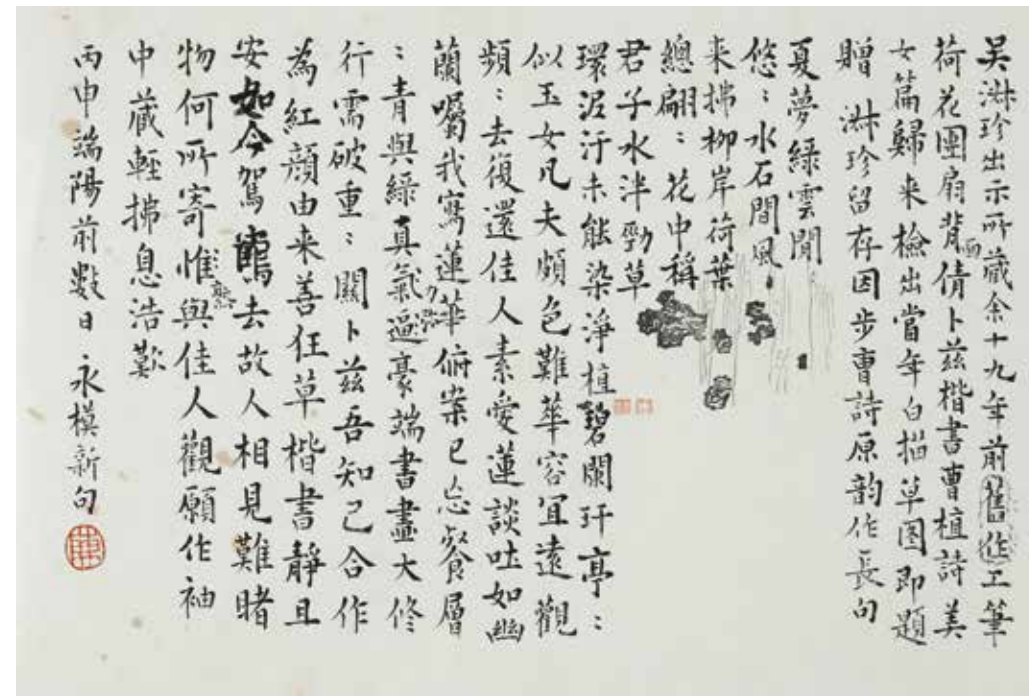 吴淋珍出示所藏余十九年前舊作工筆
荷花團扇背面倩卜兹楷書曹植詩美
女篇歸来檢出當年白描草图即題
贈 淋珍留存因步曹詩原韵作長句
夏夢綠雲閒
悠：水石間風
来拂柳岸荷葉
總翩：花中稱
君子水泮勁草
環泥汙未能染淨植碧闌玕亭：
似玉女凡夫頗色難華容宜遠觀
頻：去復還佳人素愛蓮談吐如幽
蘭囑我寫蓮華俯案已忘餐層
：青與綠真氣逼豪端書畫大修
行需破重：關卜兹吾知己合作
為紅顏由来善狂草楷書静且
安如今駕鶴去故人相見難睹
物何所寄惟與佳人觀願作袖
中藏輕拂息浩歎
丙申端陽前數日永模新句